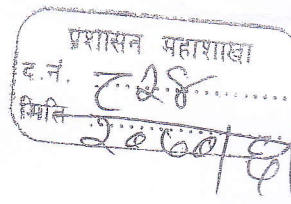 प्रशासन महाशाखा
द. नं. ८२४
मिति २०७०/६/